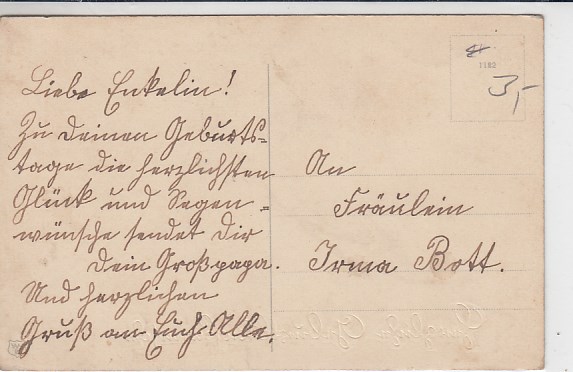 Liebe Enkelin!
Zu Deinen Geburts-
tage die herzlichsten
Glück und Segen-
wünsche sendet Dir
Dein Großpapa.
Und herzlichen
Gruß an Euch Alle.
An
Fräulein
Irma Bott.
1182
3,-